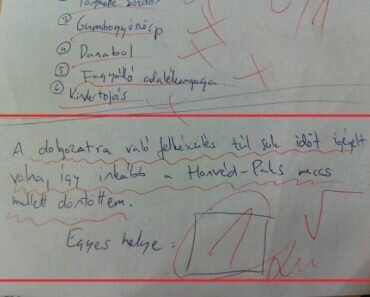 ③ Gumbogyónósp
④ Danabul
⑤ Fagyálló adalékanyaga
⑥ Kindertojás
A dolgozatra való felkészülés túl sok időt igényelt
volna, így inkább a Honvéd-Paks meccs
mellett döntöttem.
Egyes helye: 1